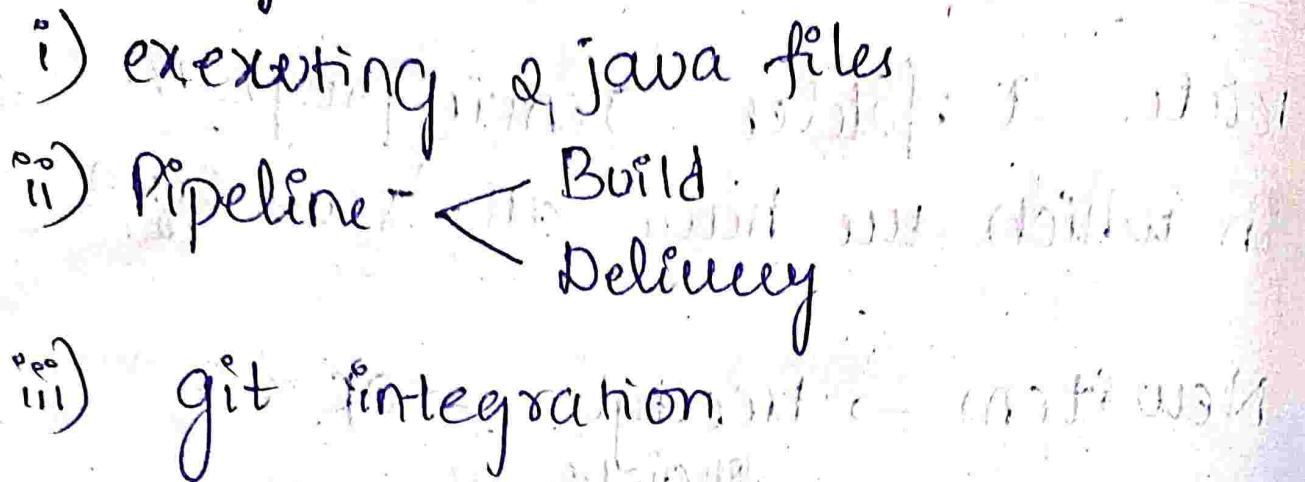 i) exexuting 2 java files
ii) Pipeline - < Build
Delivery
iii) git integration.